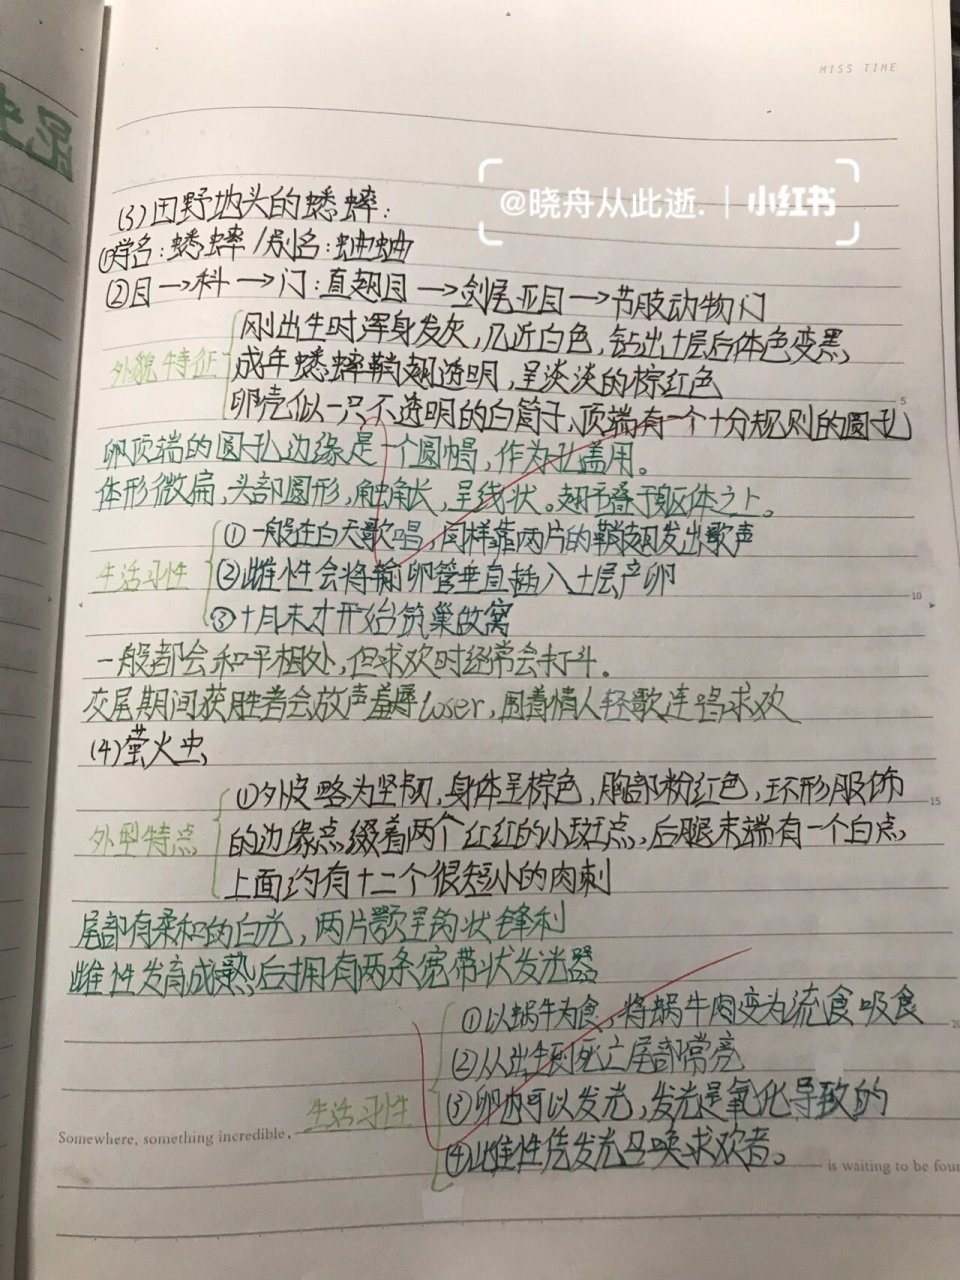 MISS TIME
@晓舟从此逝. | 小红书
(3)田野地头的蟋蟀:
①学名:蟋蟀/别名:蛐蛐
②目→科→门:直翅目→剑尾亚目→节肢动物门
外貌特征
刚出生时浑身发灰,几近白色,钻出土层后体色变黑,
成年蟋蟀鞘翅透明,呈淡淡的棕红色
卵壳似一只不透明的白筒子,顶端有一个十分规则的圆孔
卵顶端的圆孔边缘是一个圆帽,作为孔盖用。
体形微扁,头部圆形,触角长,呈线状。翅平叠于躯体之上。
生活习性
①一般在白天歌唱,同样靠两片的鞘翅发出歌声
②雌性会将输卵管垂直插入土层产卵
③十月末才开始筑巢做窝
一般都会和平相处,但求欢时经常会打斗。
交尾期间获胜者会放声羞辱loser,围着情人轻歌连唱求欢
(4)萤火虫
外型特点
①外皮略为坚韧,身体呈棕色,胸部粉红色,环形服饰
的边缘点缀着两个红红的小斑点,后腿末端有一个白点,
上面约有十二个很短小的肉刺
尾部有柔和的白光,两片颚呈钩状锋利
雌性发育成熟后拥有两条宽带状发光器
生活习性
①以蜗牛为食,将蜗牛肉变为流食吸食
②从出生到死亡尾部常亮
③卵内可以发光,发光是氧化导致的
④雌性凭发光召唤求欢者。
Somewhere, something incredible,
is waiting to be foun
5
10
15
20